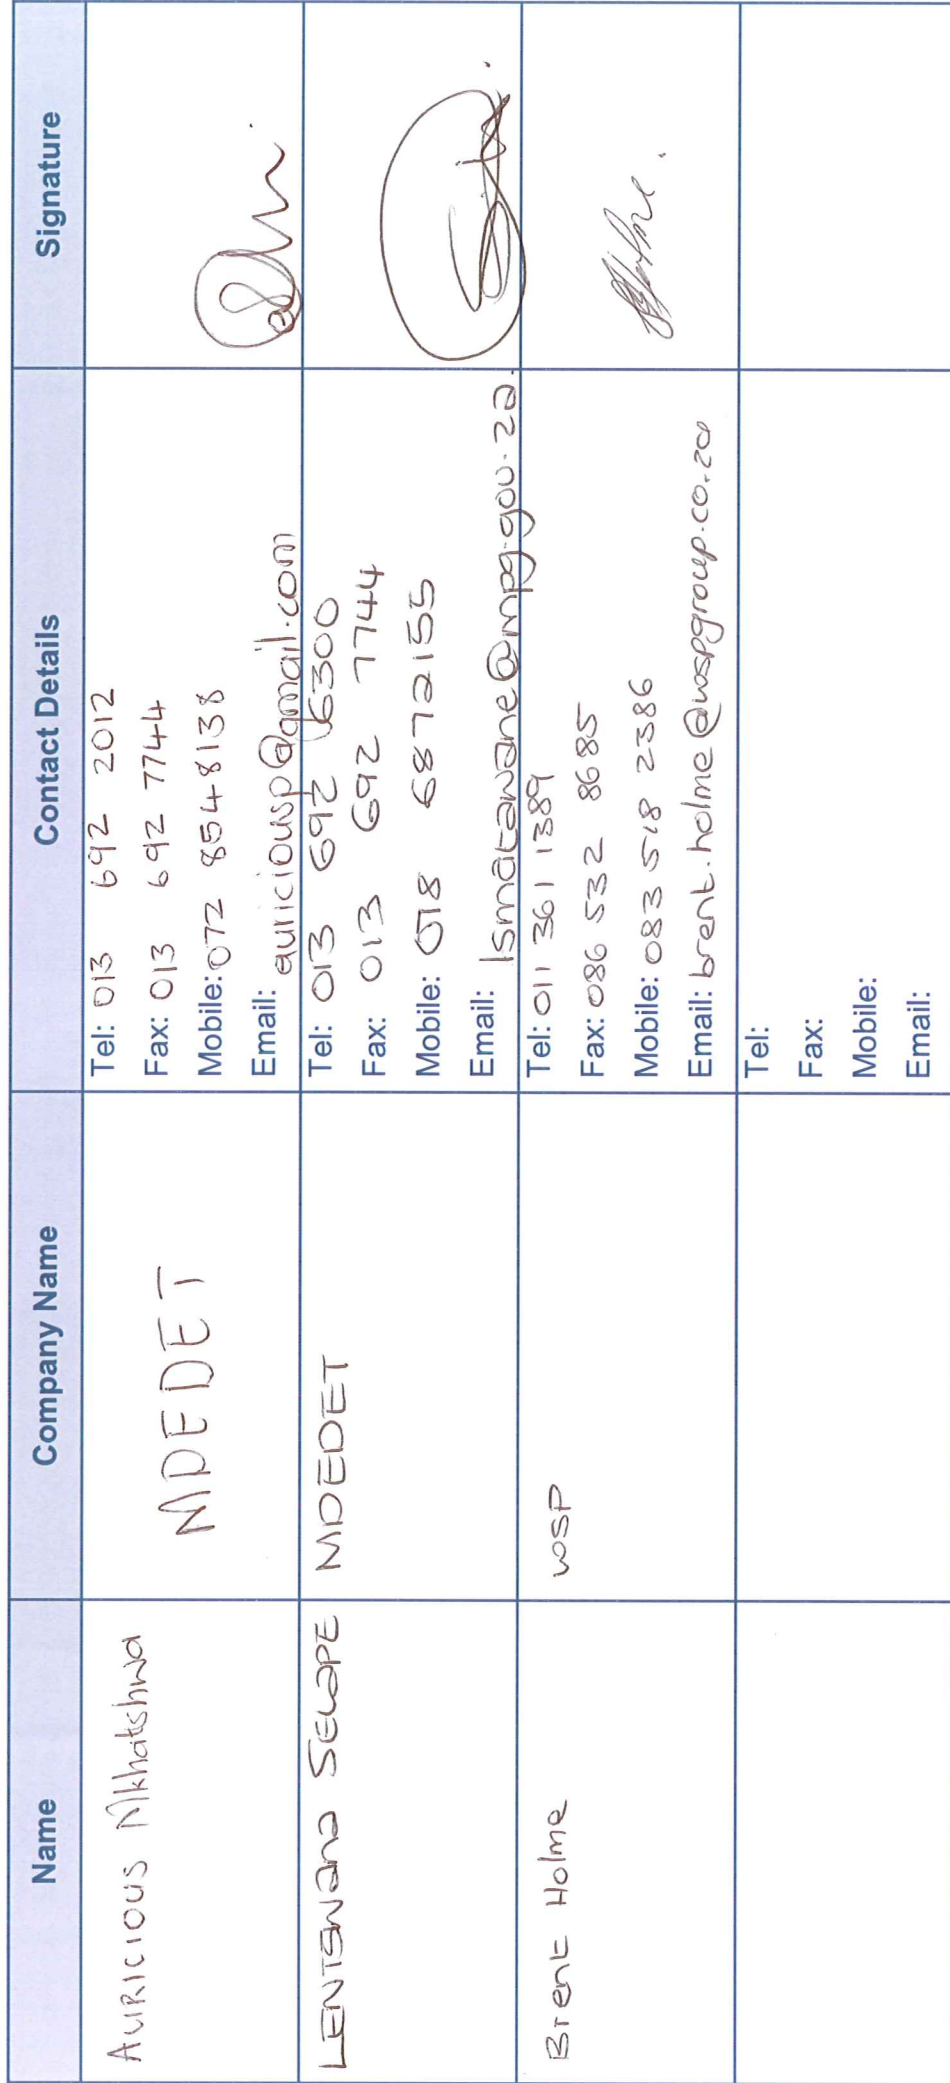 Name Company Name Contact Details Signature
AURICIOUS Mkhatshwa
MDEDET
Tel: 013 692 2012
Fax: 013 692 7744
Mobile: 072 854 8138
Email: auriciousp@gmail.com
LENTSWANA SELAPE
MDEDET
Tel: 013 692 6300
Fax: 013 692 7744
Mobile: 018 6872155
Email: lsmatawane@mpg.gov.za
Brent Holme
WSP
Tel: 011 361 1389
Fax: 086 532 8685
Mobile: 083 518 2386
Email: brent.holme@wspgroup.co.za
Tel:
Fax:
Mobile:
Email: